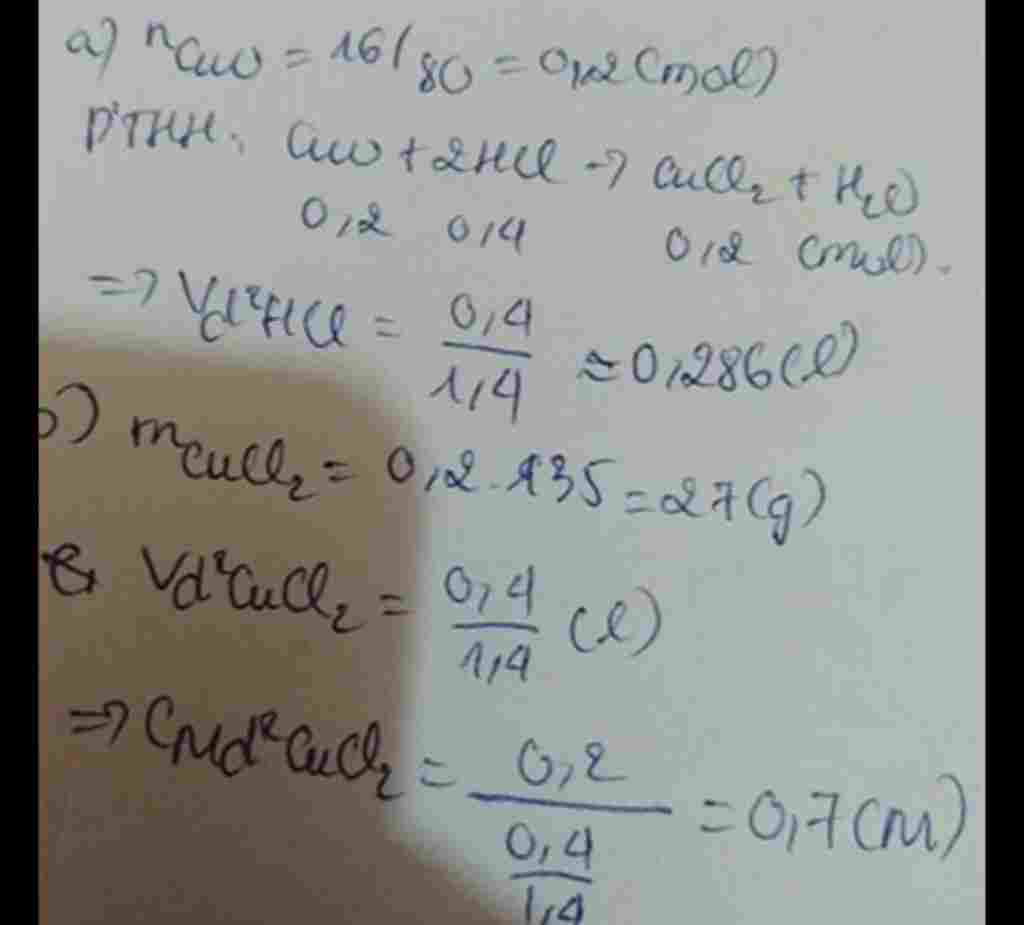 a) nCuO = 16/80 = 0,2 (mol)
PTHH: CuO + 2HCl → CuCl₂ + H₂O
0,2 0,4 0,2 (mol).
=> Vd²HCl = 0,4/1,4 ≈ 0,286 (l)
b) mCuCl₂ = 0,2 . 135 = 27 (g)
Vd²CuCl₂ = 0,4/1,4 (l)
=> CMd²CuCl₂ = 0,2/(0,4/1,4) = 0,7 (M)